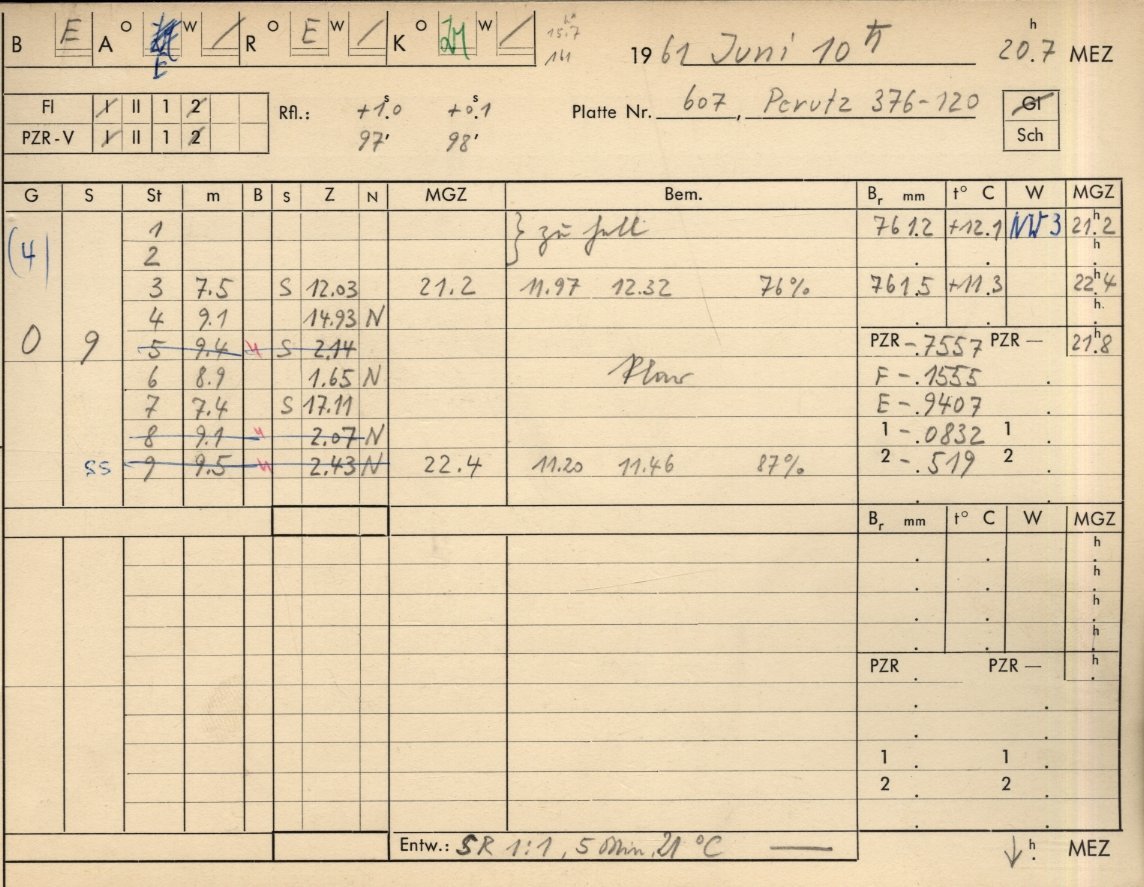 B E A O W / R O E W / K O ZM W /
E
h
15.7
161
1961 Juni 10 h 20.7 MEZ
FI I II 1 2
PZR-V I II 1 2
Rfl.: +1.ˢ0 +0.ˢ1
97' 98'
Platte Nr. 607, Perutz 376-120
Gl
Sch
G S St m B S Z N MGZ Bem. Bᵣ mm t° C W MGZ
(4) 1 } zu hell 761.2 +12.1 NW 3 21.ʰ2
2 h
3 7.5 S 12.03 21.2 11.97 12.32 76% 761.5 +11.3 22.ʰ4
4 9.1 14.93 N h.
0 9 5 9.4 S 2.14 PZR -.7557 PZR — 21.ʰ8
6 8.9 1.65 N klar F -.1555
7 7.4 S 17.11 E -.9407
8 9.1 2.07 N 1 -.0832 1
SS 9 9.5 2.43 N 22.4 11.20 11.46 87% 2 -.519 2
Bᵣ mm t° C W MGZ
h
h
h
h
PZR PZR — h
1 1
2 2
Entw.: SR 1:1, 5 Min, 21 °C — h MEZ